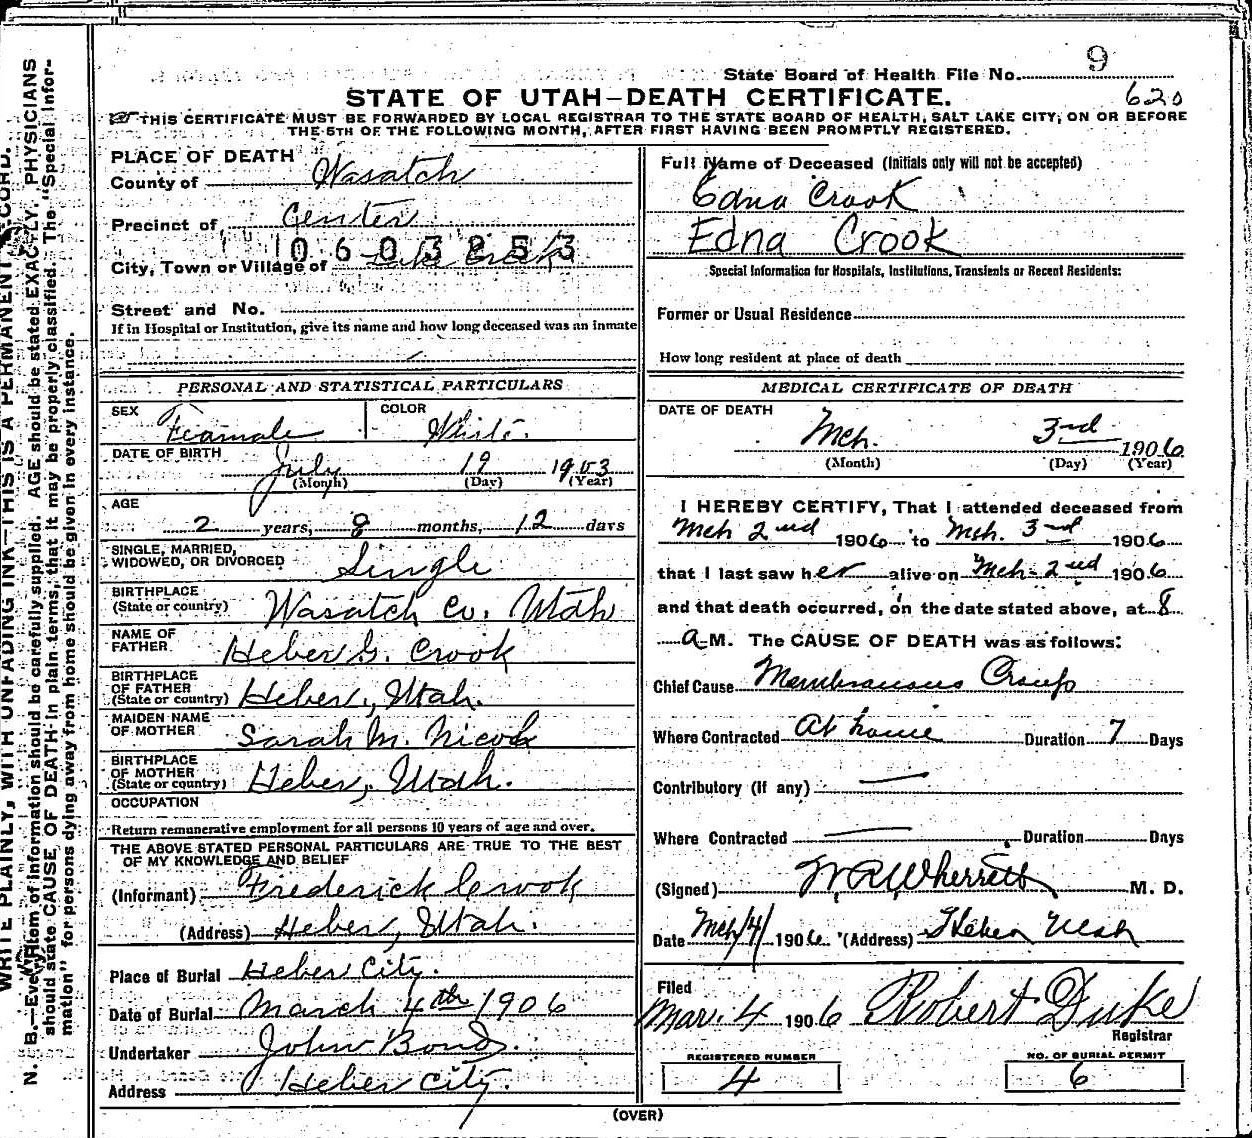 State Board of Health File No. 9
STATE OF UTAH—DEATH CERTIFICATE. 620
THIS CERTIFICATE MUST BE FORWARDED BY LOCAL REGISTRAR TO THE STATE BOARD OF HEALTH, SALT LAKE CITY, ON OR BEFORE
THE 5TH OF THE FOLLOWING MONTH, AFTER FIRST HAVING BEEN PROMPTLY REGISTERED.
PLACE OF DEATH
County of Wasatch
Precinct of Center
10603853
City, Town or Village of Lake Creek
Street and No.
If in Hospital or Institution, give its name and how long deceased was an inmate
PERSONAL AND STATISTICAL PARTICULARS
SEX Feamale COLOR White.
DATE OF BIRTH
July 19 1903
(Month) (Day) (Year)
AGE
2 years, 8 months, 12 days
SINGLE, MARRIED,
WIDOWED, OR DIVORCED Single
BIRTHPLACE
(State or country) Wasatch Co. Utah
NAME OF
FATHER Heber G. Crook
BIRTHPLACE
OF FATHER
(State or country) Heber, Utah.
MAIDEN NAME
OF MOTHER Sarah M. Nicol
BIRTHPLACE
OF MOTHER
(State or country) Heber, Utah.
OCCUPATION
Return remunerative employment for all persons 10 years of age and over.
THE ABOVE STATED PERSONAL PARTICULARS ARE TRUE TO THE BEST
OF MY KNOWLEDGE AND BELIEF
(Informant) Frederick Crook
(Address) Heber, Utah.
Place of Burial Heber City.
Date of Burial March 4th 1906
Undertaker John Bond.
Address Heber City.
Full Name of Deceased (Initials only will not be accepted)
Edna Crook
Edna Crook
Special Information for Hospitals, Institutions, Transients or Recent Residents:
Former or Usual Residence
How long resident at place of death
MEDICAL CERTIFICATE OF DEATH
DATE OF DEATH
Mch. 3rd 1906
(Month) (Day) (Year)
I HEREBY CERTIFY, That I attended deceased from
Mch 2nd 1906 to Mch. 3rd 1906
that I last saw her alive on Mch-2nd 1906
and that death occurred, on the date stated above, at 8
a M. The CAUSE OF DEATH was as follows:
Chief Cause Membranous Croup
Where Contracted At home Duration 7 Days
Contributory (If any) —
Where Contracted — Duration Days
(Signed) W R Wherritt M. D.
Date Mch/4/ 1906 (Address) Heber Utah
Filed
Mar. 4 1906 Robert Duke
Registrar
REGISTERED NUMBER
4
NO. OF BURIAL PERMIT
6
(OVER)
WRITE PLAINLY, WITH UNFADING INK—THIS IS A PERMANENT RECORD.
N. B.—Every item of information should be carefully supplied. AGE should be stated EXACTLY. PHYSICIANS
should state CAUSE OF DEATH in plain terms, that it may be properly classified. The "Special Infor-
mation" for persons dying away from home should be given in every instance.